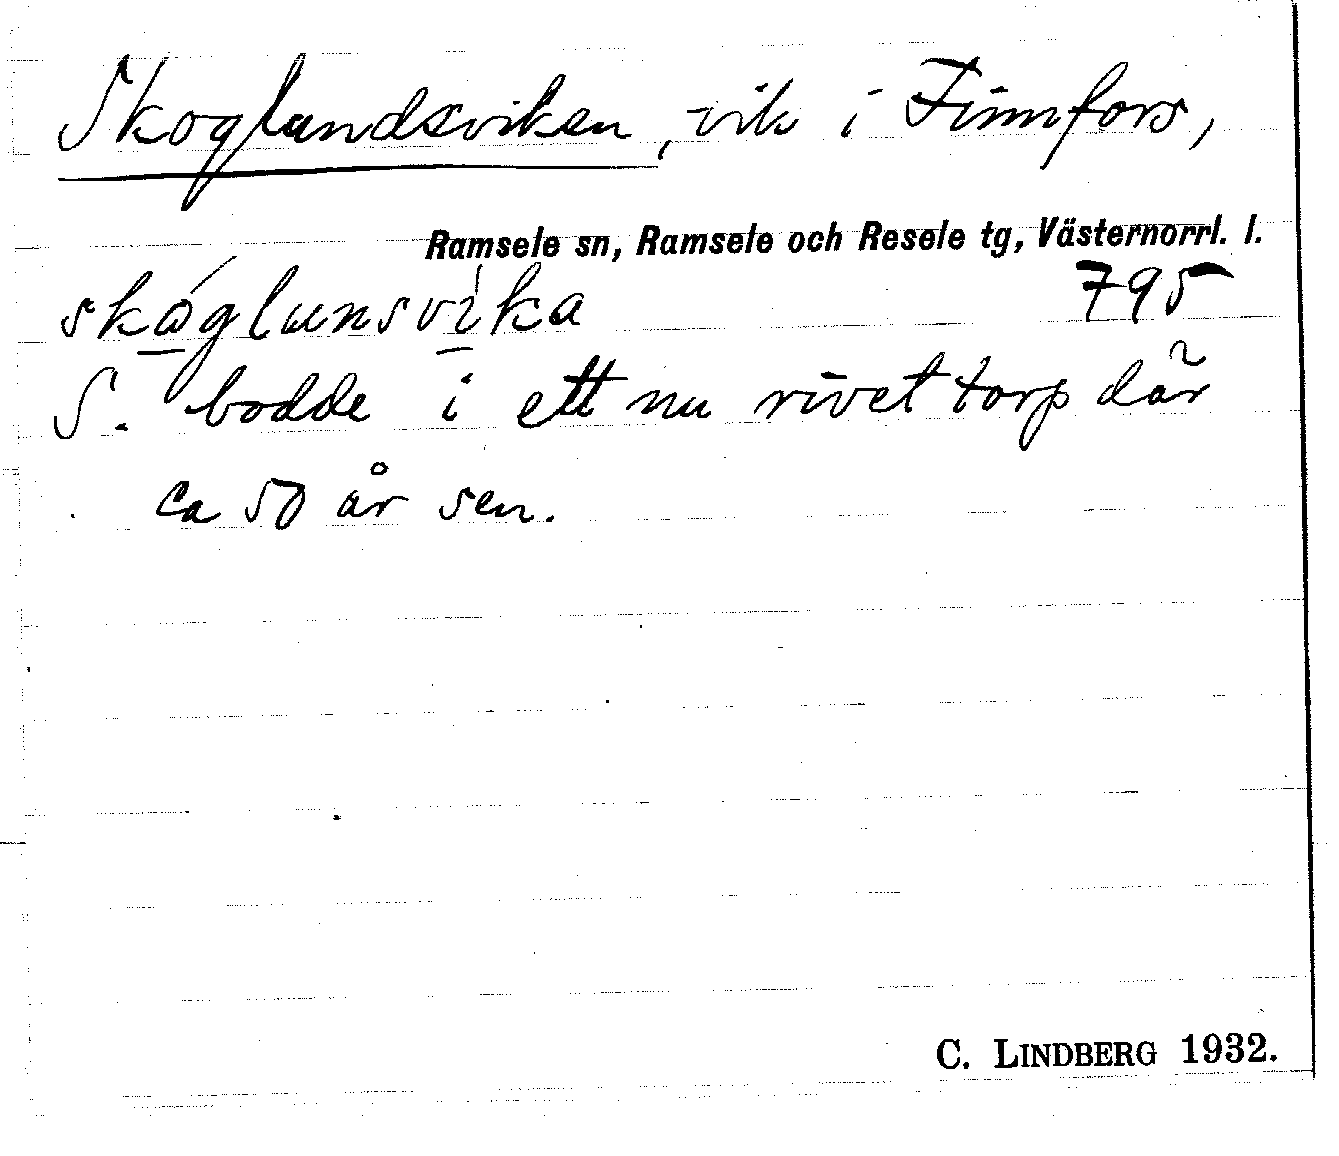 Skoglundsviken, vik i Finnfors,
Ramsele sn, Ramsele och Resele tg, Västernorrl. l.
skåglunsvika 795
S. bodde i ett nu rivet torp där
ca 50 år sen.
C. LINDBERG 1932.